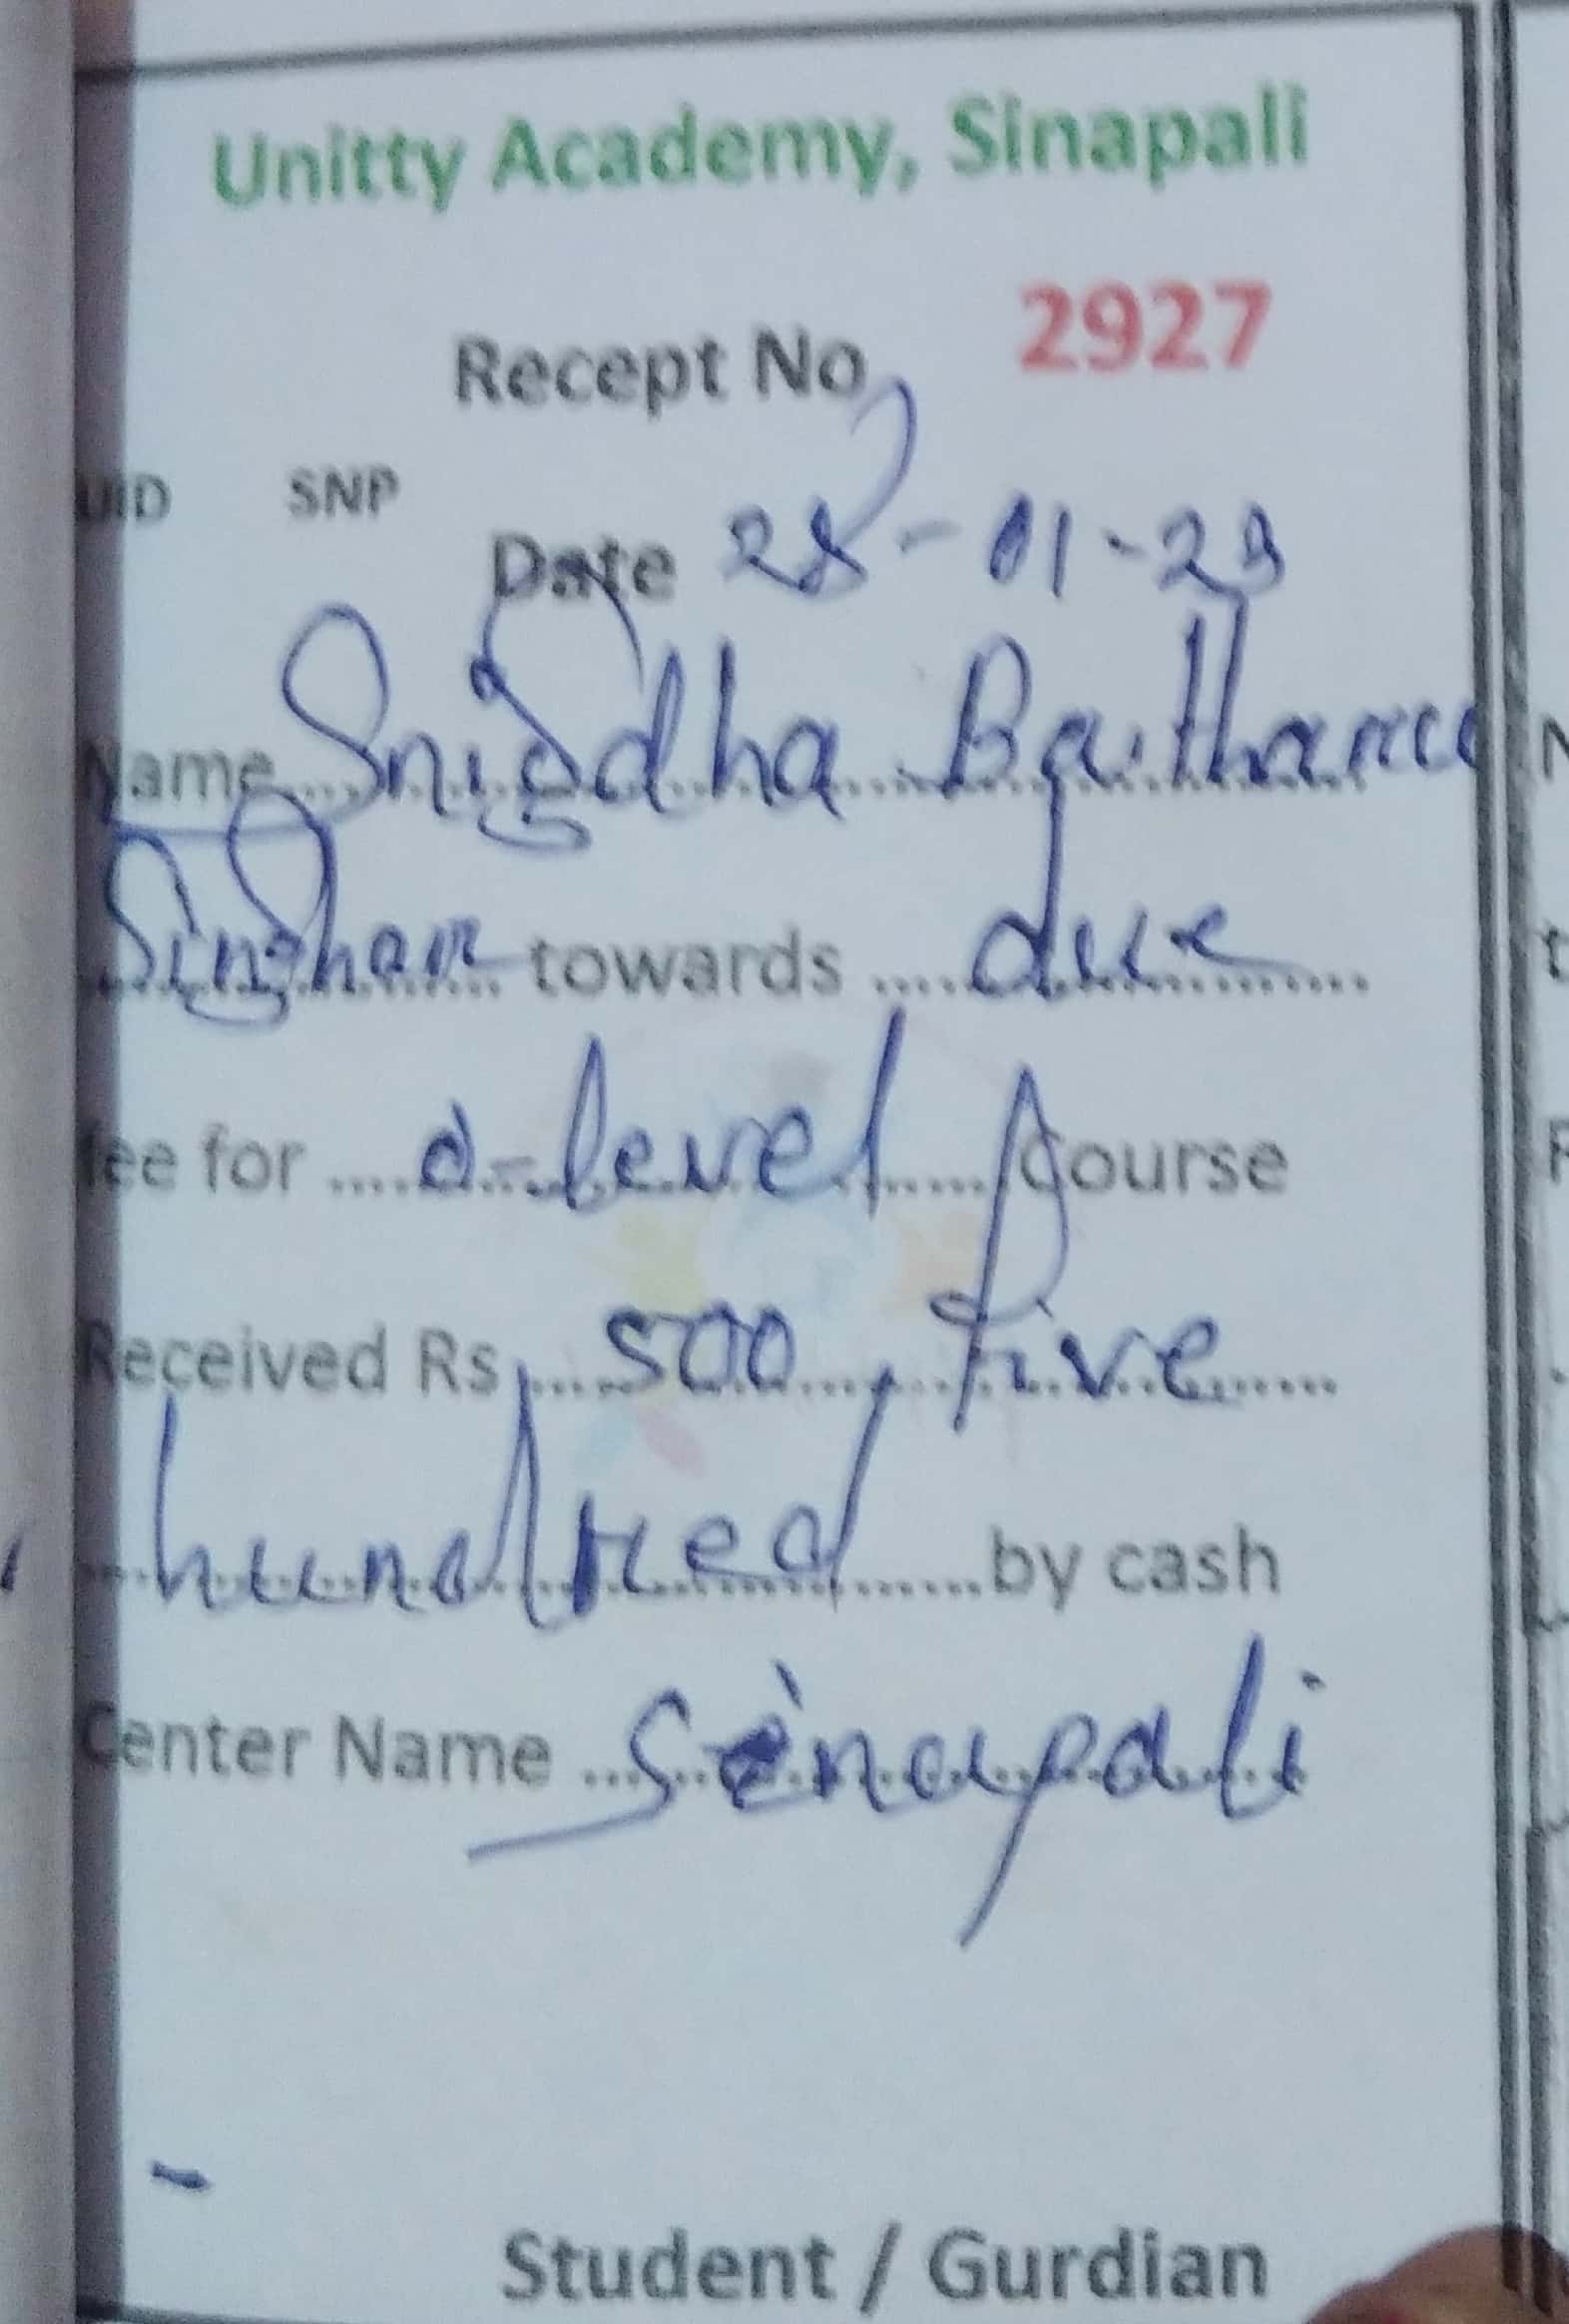 Unitty Academy, Sinapali
Recept No 2927
UID SNP
Date 28-01-23
Name Snigdha
Singhan towards due
fee for o-level Course
Received Rs 500, five
hundred by cash
Center Name Sinapali
Student / Gurdian